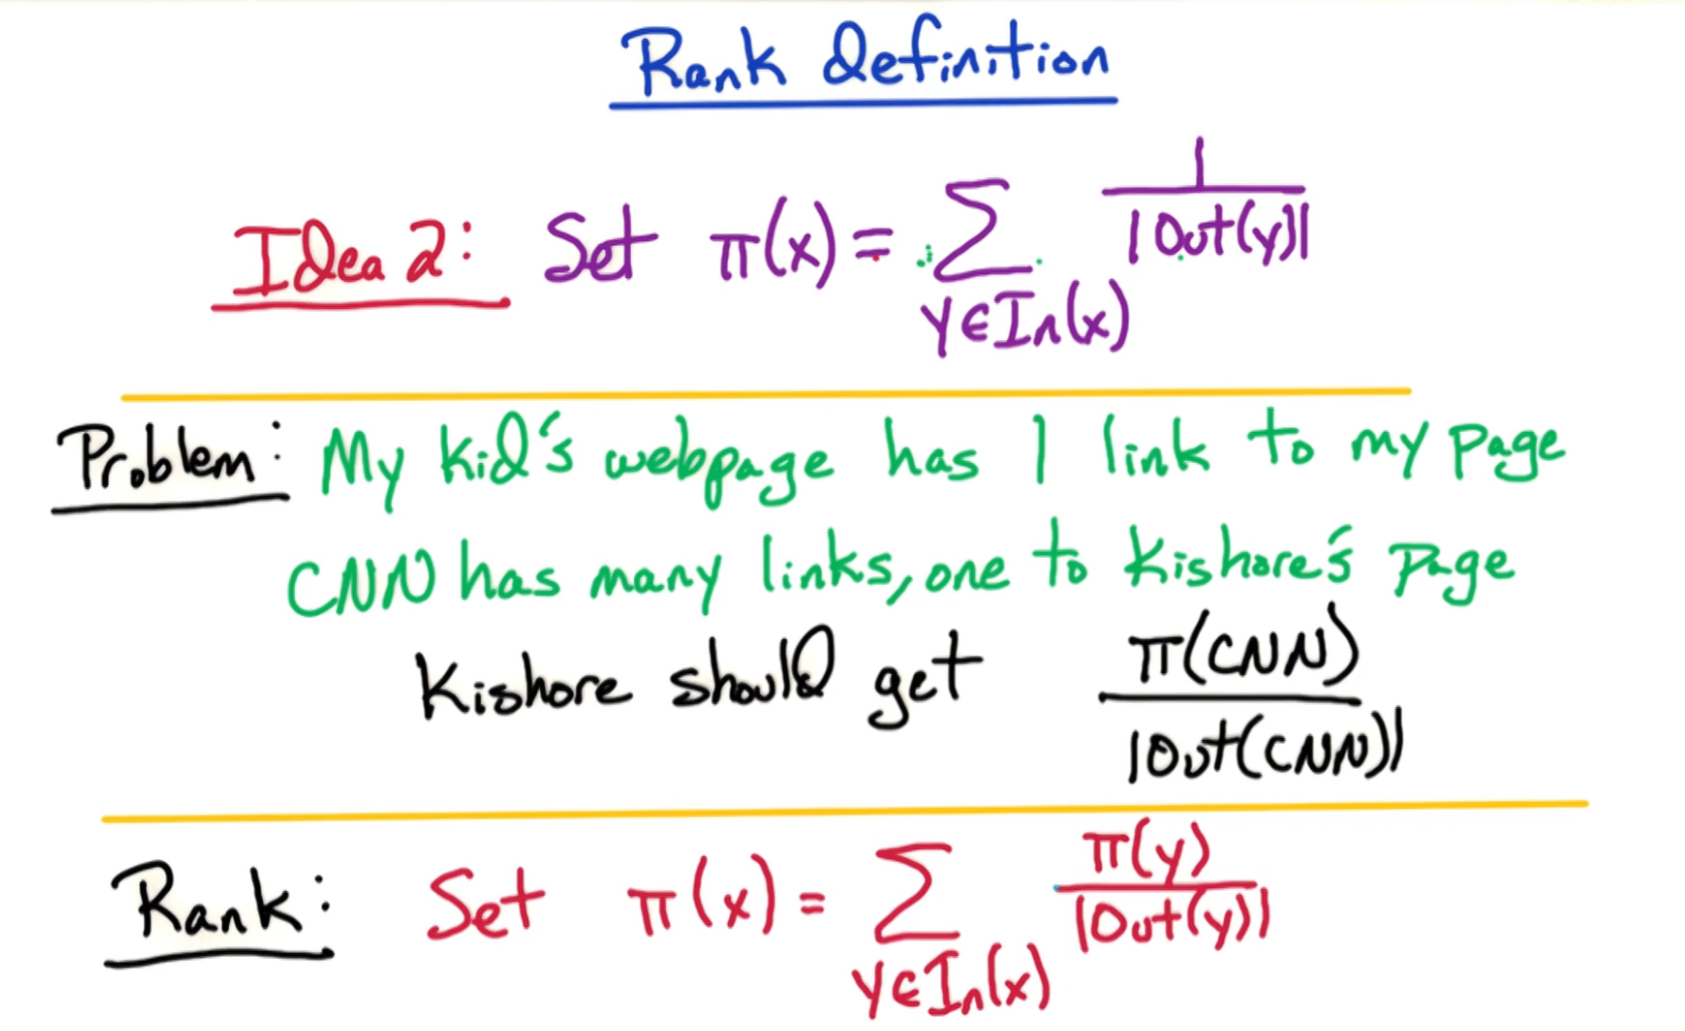 Rank definition
Idea 2: Set π(x) = ∑_{y∈In(x)} 1/|Out(y)|
Problem: My kid's webpage has 1 link to my page
CNN has many links, one to Kishore's page
Kishore should get π(CNN)/|Out(CNN)|
Rank: Set π(x) = ∑_{y∈In(x)} π(y)/|Out(y)|